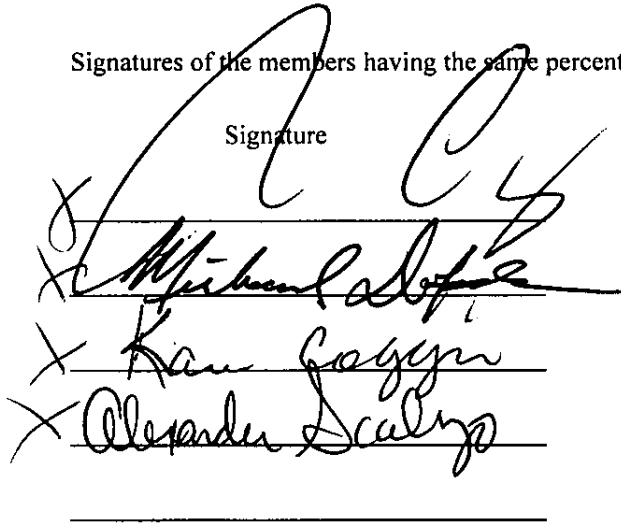 Signatures of the members having the same percent
Signature
X
X Michael
X Karen Goggin
X Alexander Scalzo